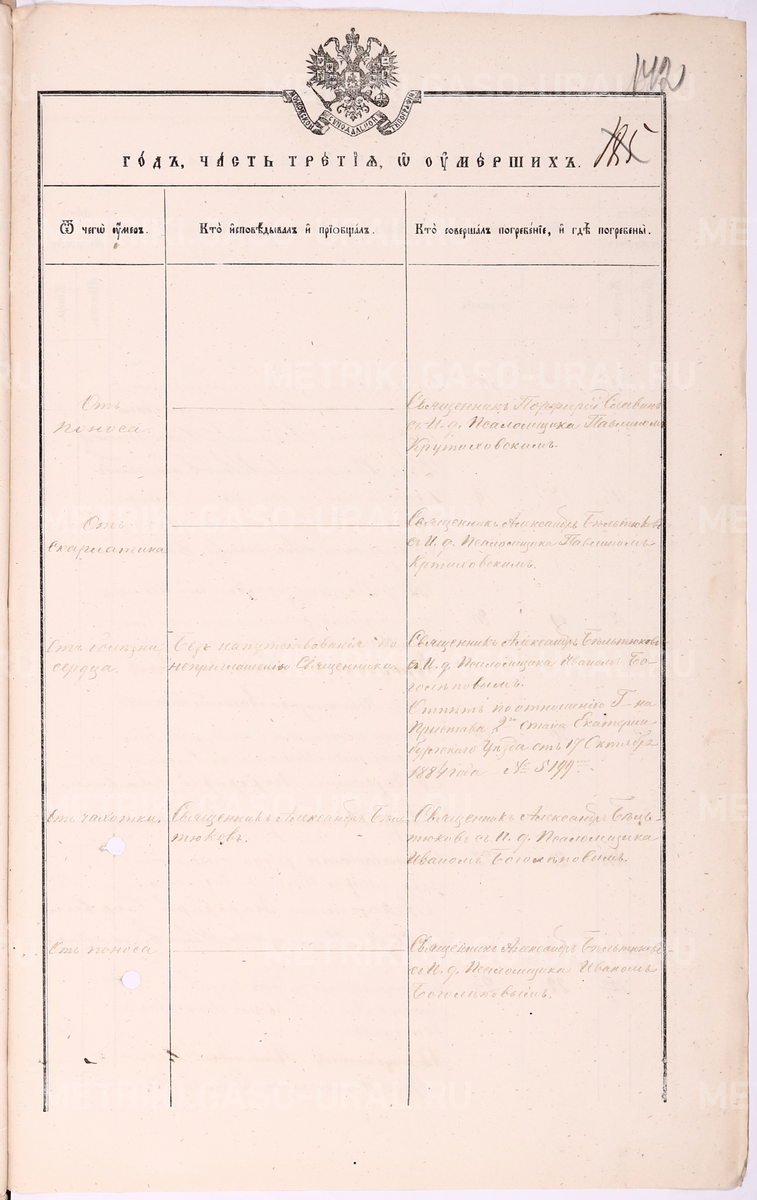 142
МОСКОВСКОЙ СѴНОДАЛЬНОЙ ТИПОГРАФІИ
185
ГОДЪ, ЧАСТЬ ТРЕТІѦ, Ѿ ОУМЕРШИХЪ.
Ѿ чегѡ оумеръ.
Кто исповѣдывалъ и пріобщалъ.
Кто совершалъ погребеніе, и гдѣ погребены.
Отъ
поноса.
Священникъ Порфирій Славнинъ
съ И. д. Псаломщика Павлиномъ
Крутиховскимъ.
Отъ
скарлатина
Священникъ Александръ Бѣльтюковъ
съ И. д. Псаломщика Павлиномъ
Крутиховскимъ.
Отъ болѣзни
сердца.
Безъ напутствованія по
неприглашенію Священника.
Священникъ Александръ Бѣльтюковъ
съ И. д. Псаломщика Иваномъ Бо-
голѣповымъ.
Отпѣтъ по отношенію Г-на
Пристава 2го стана Екатерин
бургскаго Уѣзда отъ 17 Октября
1884 года № 5199.
Отъ чахотки.
Священникъ Александръ Бѣль-
тюковъ.
Священникъ Александръ Бѣль-
тюковъ съ И. д. Псаломщика
Иваномъ Боголѣповымъ.
Отъ поноса
Священникъ Александръ Бѣльтюковъ
съ И. д. Псаломщика Иваномъ
Боголѣповымъ.
METRIK.GASO-URAL.RU